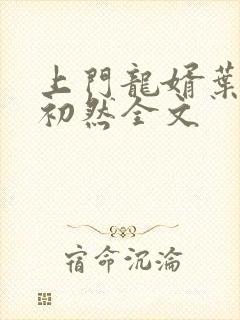 上門龍婿葉
初然全文
宿命沉淪